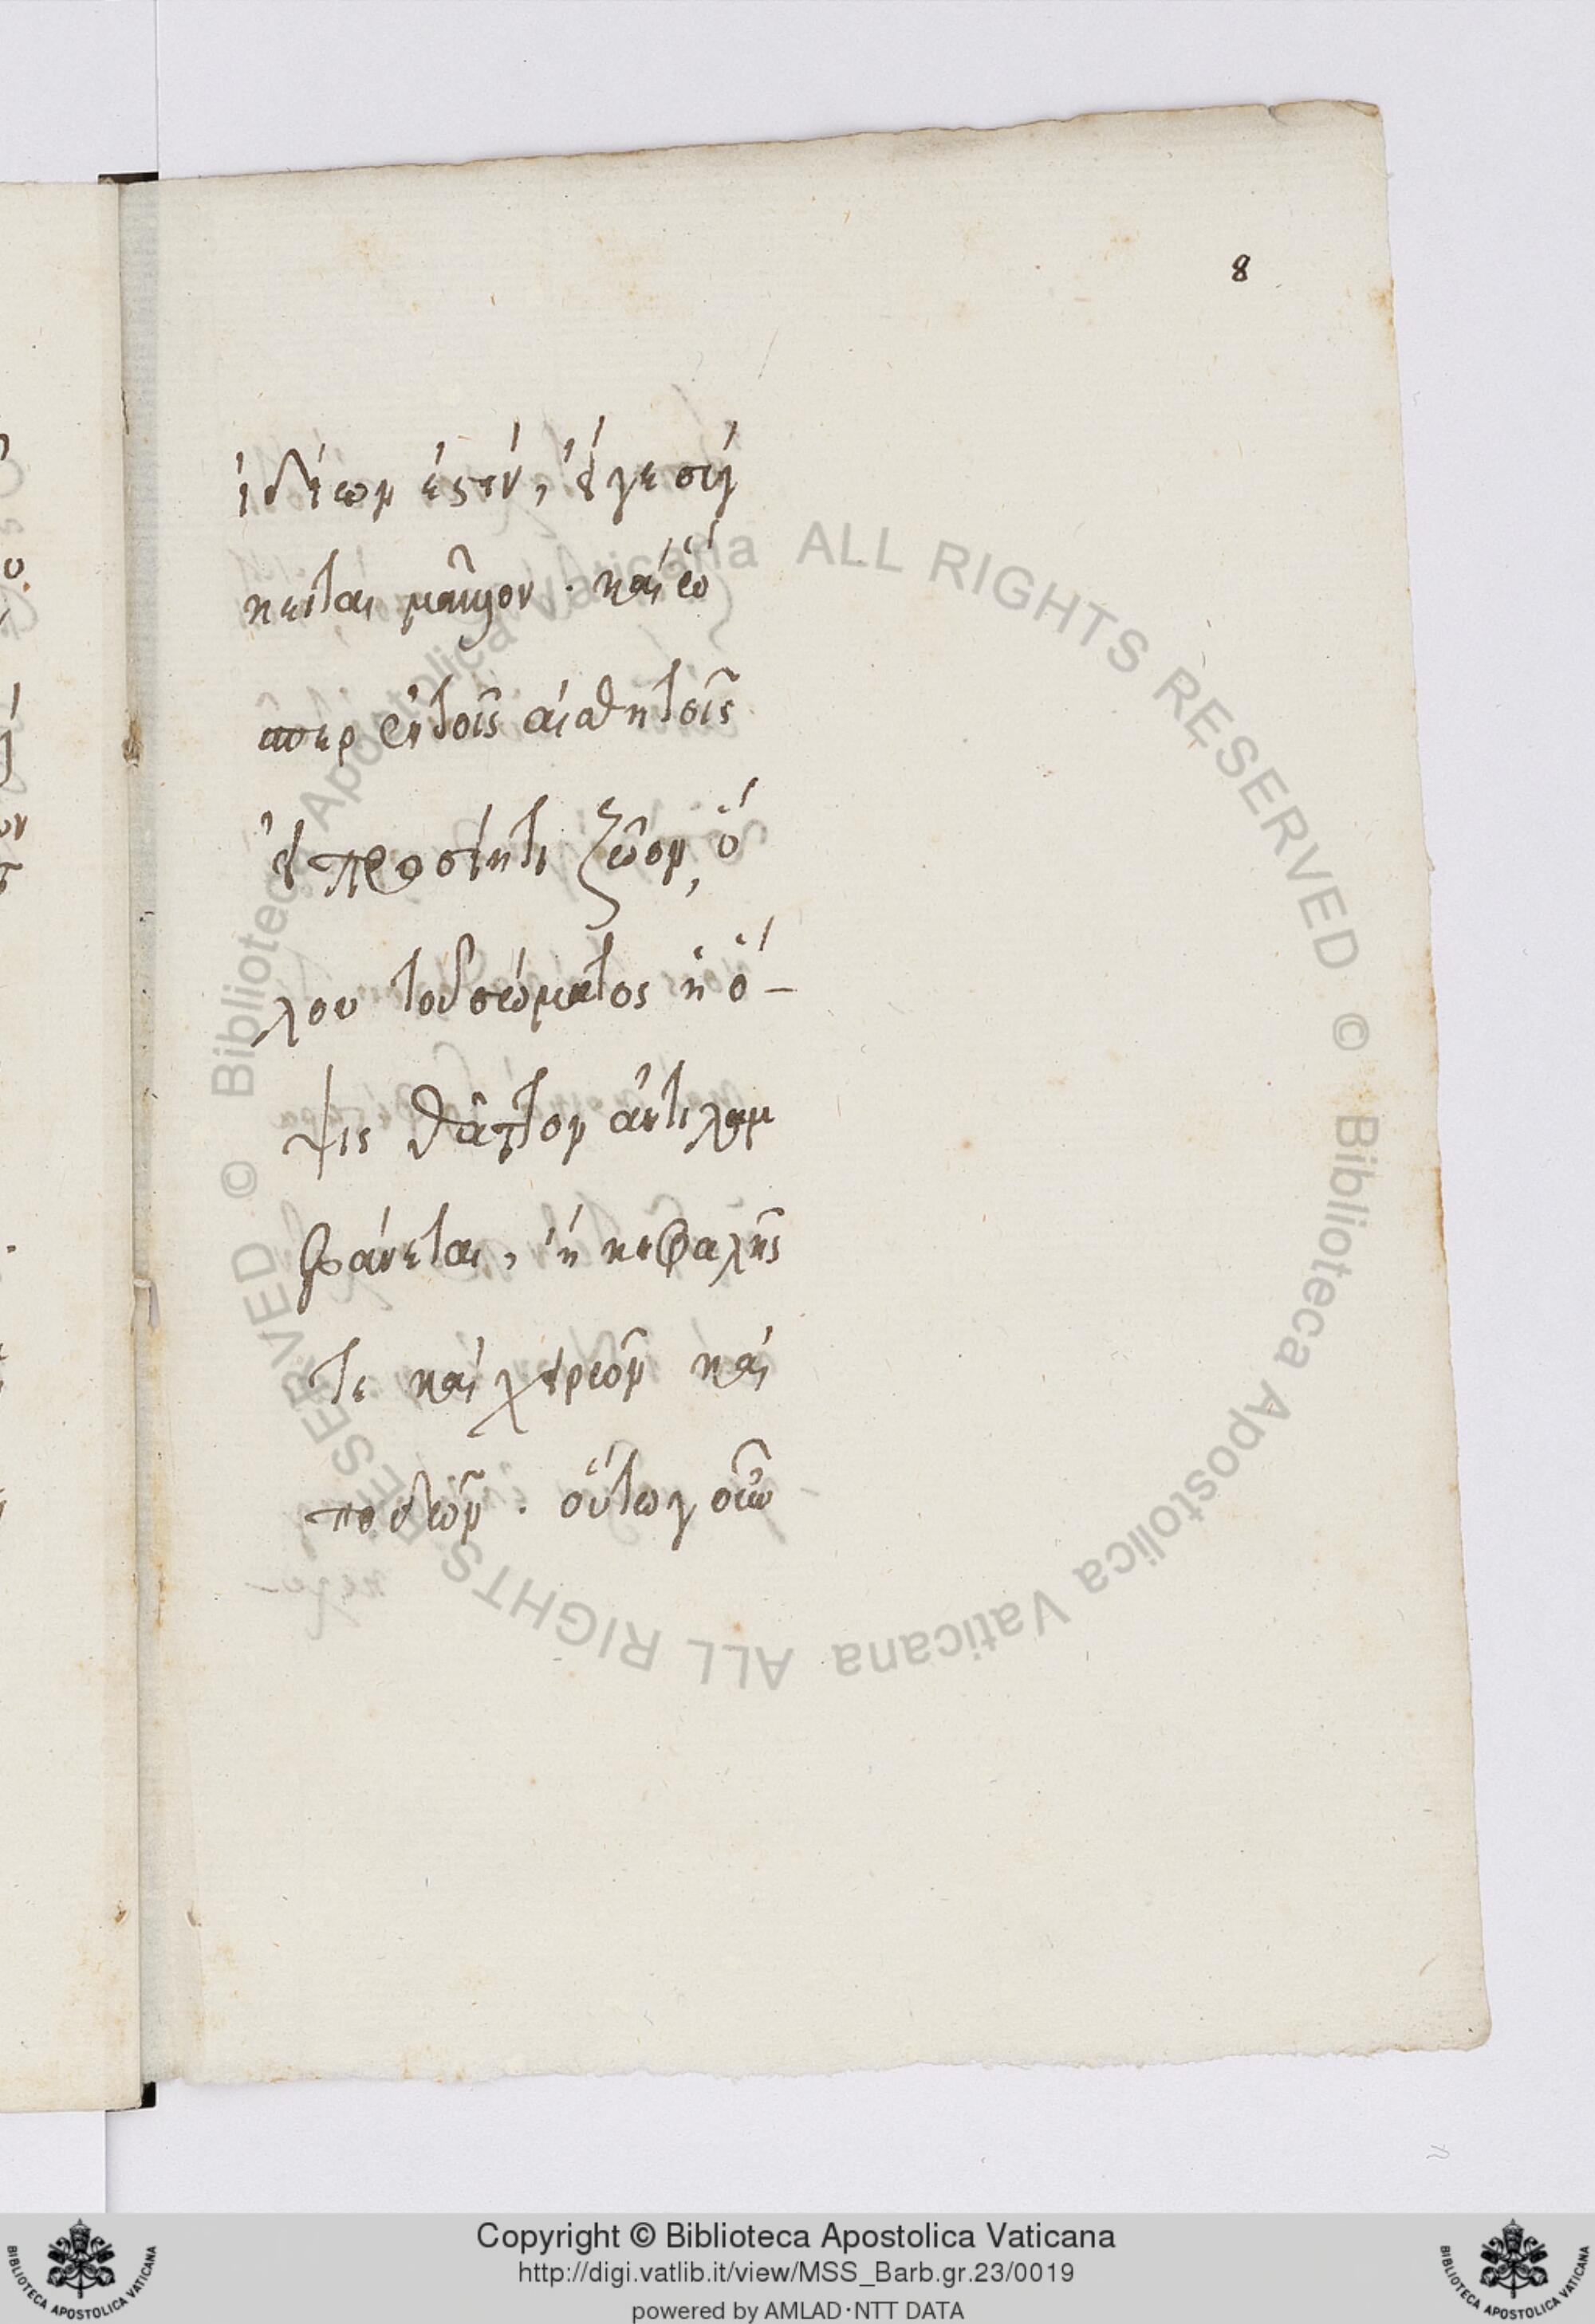 8
ἰδίων ἐστὶν, εἴγε σύγ
κειται μᾶλλον. καὶ ὥ
σπερ ἐν τοῖς αἰσθητοῖς
εἰ προσίῃ τι ζῶον, ὅ
λου τοῦ σώματος ἡ ὄ-
ψις θᾶττον ἀντιλαμ
βάνεται, ἢ κεφαλῆς
τε καὶ χειρῶν καὶ
ποδῶν. οὕτω γοῦν
Biblioteca Apostolica Vaticana ALL RIGHTS RESERVED ©
Biblioteca Apostolica Vaticana ALL RIGHTS RESERVED ©
Copyright © Biblioteca Apostolica Vaticana
http://digi.vatlib.it/view/MSS_Barb.gr.23/0019
powered by AMLAD·NTT DATA
BIBLIOTECA APOSTOLICA VATICANA
BIBLIOTECA APOSTOLICA VATICANA